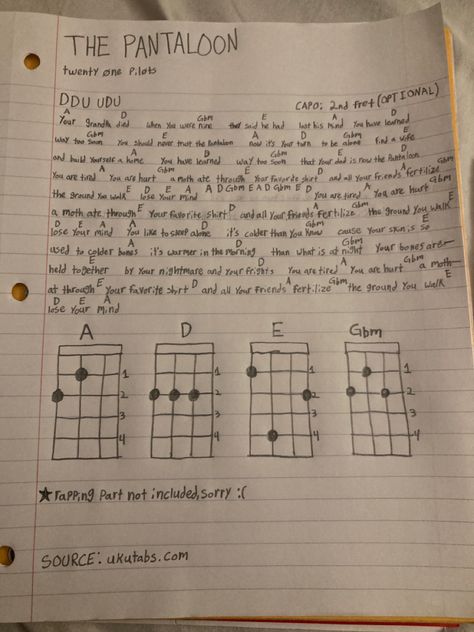 THE PANTALOON
twenty øne pilots
DDU UDU
CAPO: 2nd Fret (OPTIONAL)
A D Gbm E A D
Your grandpa died when you were nine they said he had lost his mind You have learned
Gbm E A D Gbm E
way too soon You should never trust the Pantaloon now it's your turn to be alone find a wife
A D Gbm E
and build yourself a home You have learned way too soon that your dad is now the Pantaloon
A D E A D Gbm
You are tired You are hurt a moth ate through your favorite shirt and all your friends fertilize
E D E A A D Gbm E A D Gbm E D A
the ground you walk lose your mind You are tired You are hurt
E D Gbm
a moth ate through your favorite shirt and all your friends fertilize the ground you walk
E D E A D Gbm E
lose your mind You like to sleep alone it's colder than you know cause your skin is so
A D Gbm
used to colder bones it's warmer in the morning than what is at night your bones are
E A D
held together by your nightmare and your frights You are tired You are hurt a moth
E A D Gbm E
ate through your favorite shirt and all your friends fertilize the ground you walk
D E A
lose your mind
A D E Gbm
1 1 1 1
2 2 2 2
3 3 3 3
4 4 4 4
★ rapping part not included, sorry :(
SOURCE: ukutabs.com